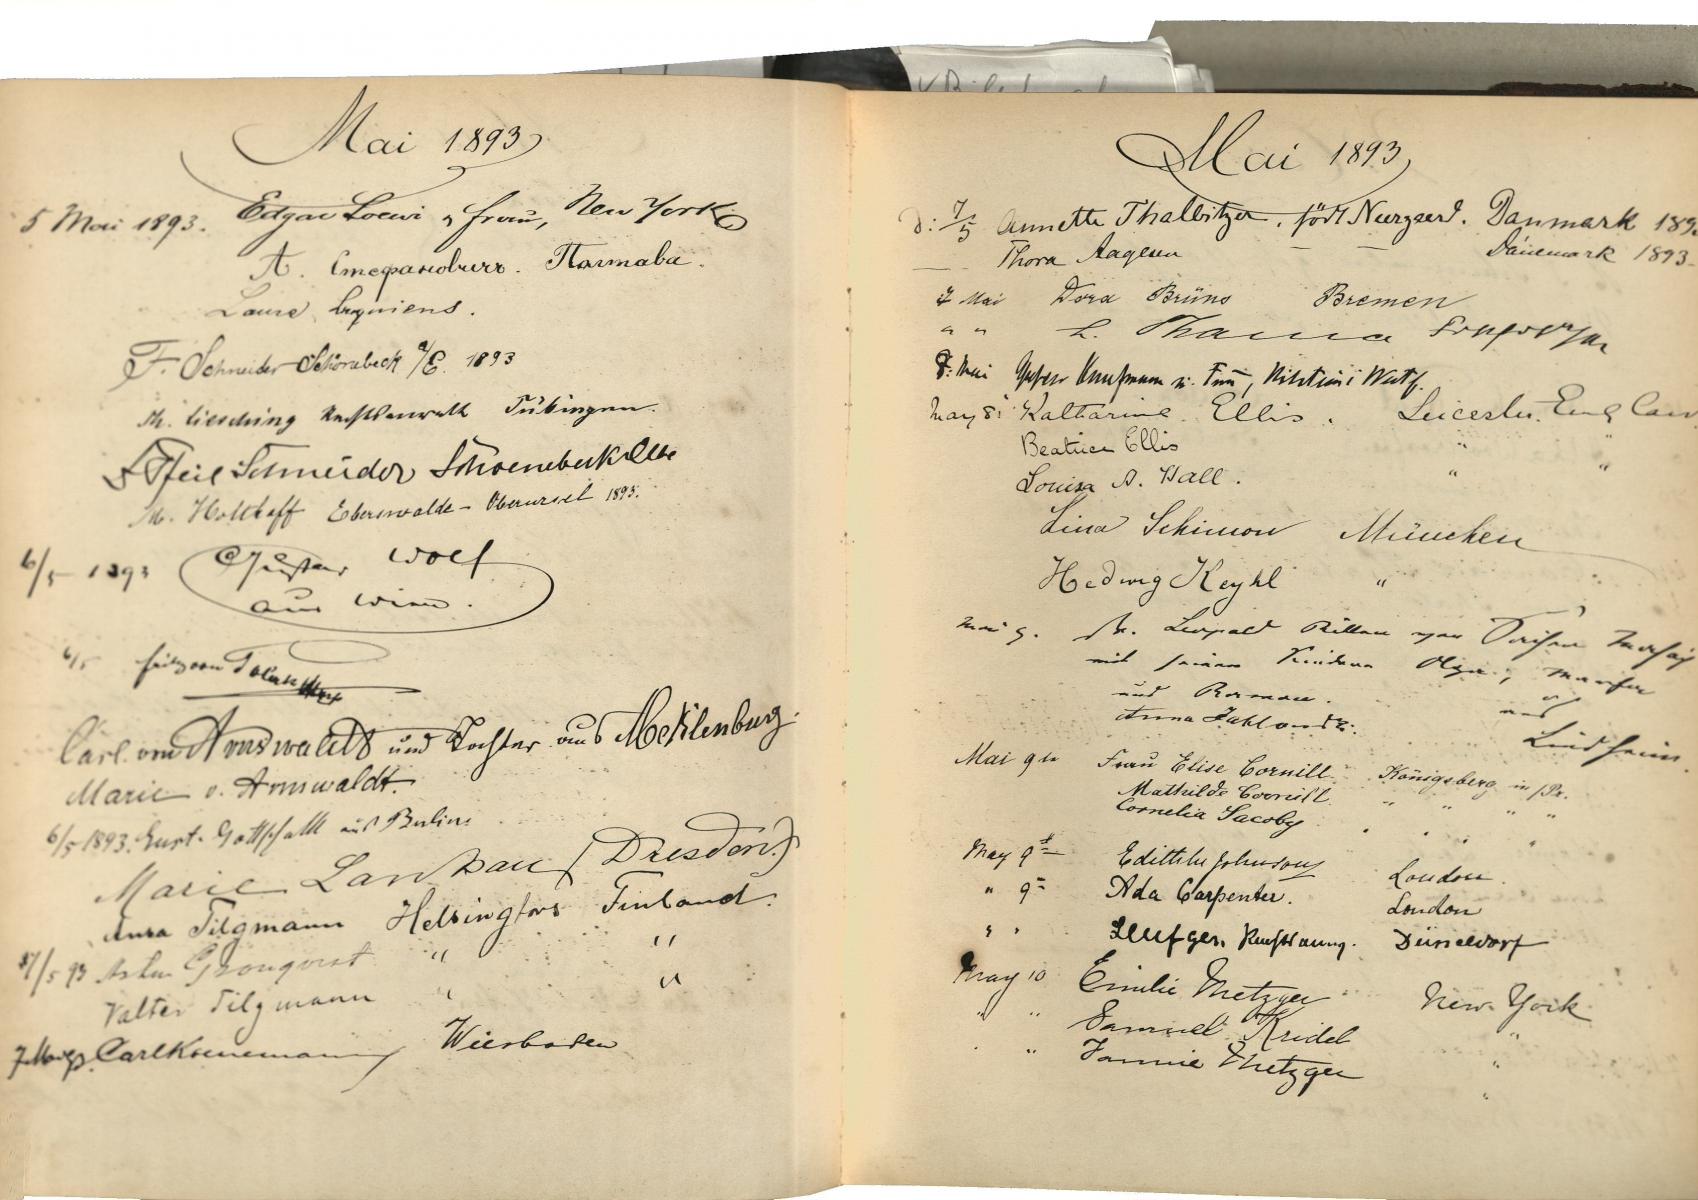 Mai 1893
5 Mai 1893. Edgar Loewi u Frau, New York
А. Стефановичъ. Полтава.
Laure
F. Schneider-Schönebeck a/E. 1893
Th. Liesching Rechtsanwalt Tübingen.
Schneider Schoenebeck Elbe
M. Holtheff Eberswalde - Oberursel 1893.
6/5 1893 Gustav Wolf
aus Wien.
6/5 Fritz von
Carl von Arnswaldt und Tochter aus Meklenburg.
Marie v. Arnswaldt.
6/5 1893. Curt Gottschalk aus Berlin.
Marie Lankau (Dresden.)
Anna Tilgmann Helsingfors Finland.
7/5 93 Gronqvist " "
Valter Tilgmann " "
7 Mai 93. Carl Koenemann Wiesbaden
Mai 1893
D: 7/5 Annette Thalbitzer, född Neergaard. Danmark 189
— Thora Aagesen — — Dänemark 1893
7 Mai Dora Brüns Bremen
" " L. Thama
8. Mai Kaufmann u. Frau,
May 8: Katharine Ellis. Leicester. England
Beatrice Ellis " "
Louisa A. Hall. " "
Lina Schimon München
Hedwig Keyhl "
Mai 9. Dr. Leopold Ritter von Sacher Masoch
mit seinen Kindern Olga, Marfa
und Roman. aus
Anna Jahlandt. Lindheim.
Mai 9ten Frau Elise Cornill Königsberg in /Pr.
Mathilde Cornill " " "
Cornelia Jacoby " " "
May 9th Edith Johnson London.
" 9th Ada Carpenter. London
" " Düsseldorf
May 10 Emilie Metzger New-York
" " Samuel Kridel "
" " Fannie Metzger "